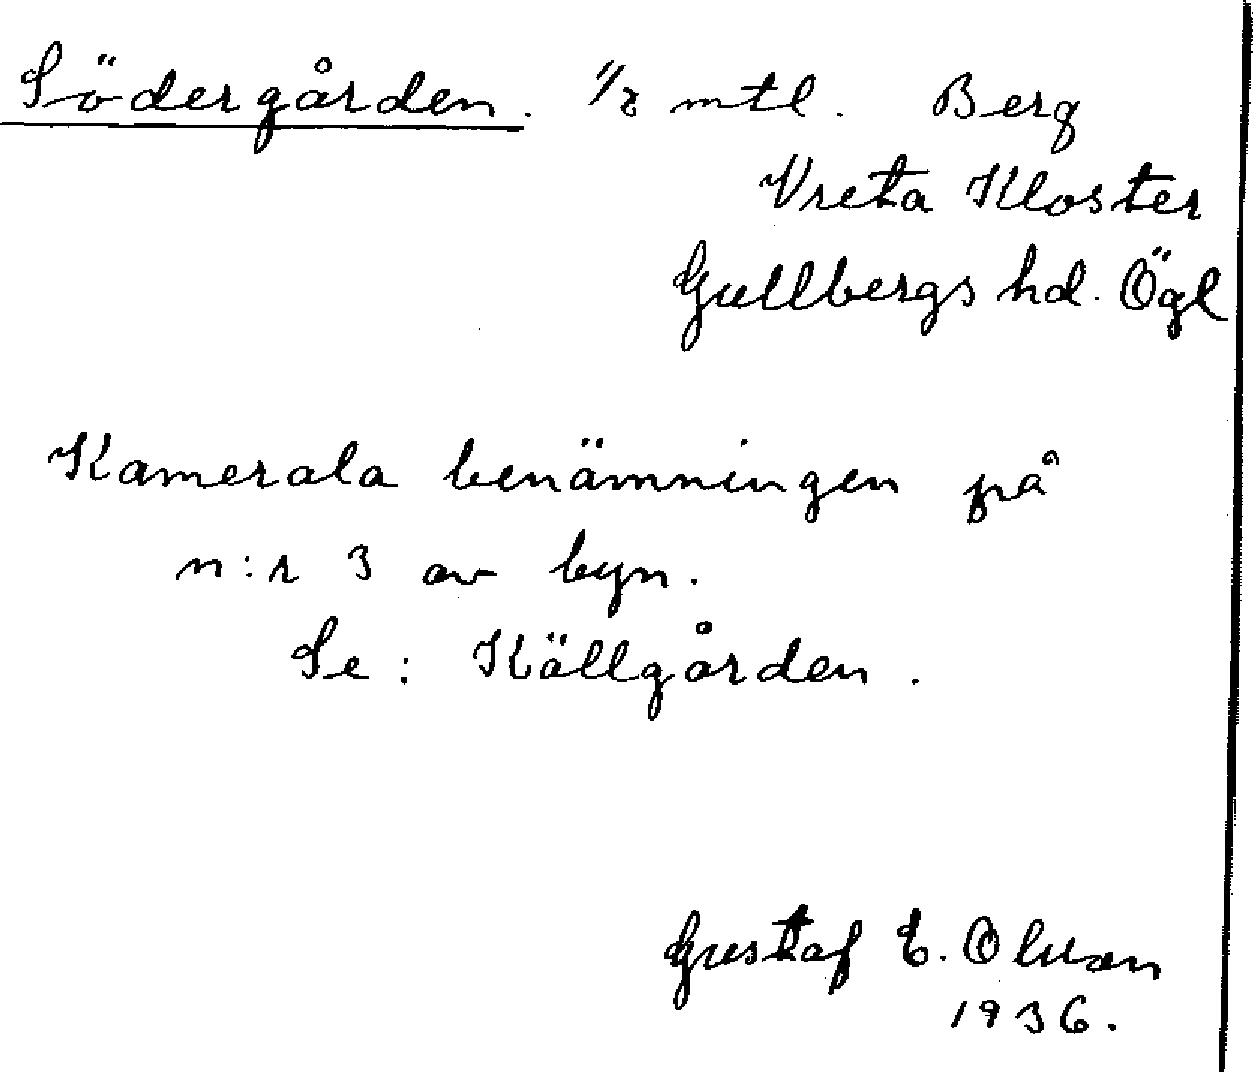 Södergården. 1/2 mtl. Berg
Vreta Kloster
Gullbergs hd. Ögl
Kamerala benämningen på
n:r 3 av byn.
Se: Källgården.
Gustaf E. Olsson
1936.